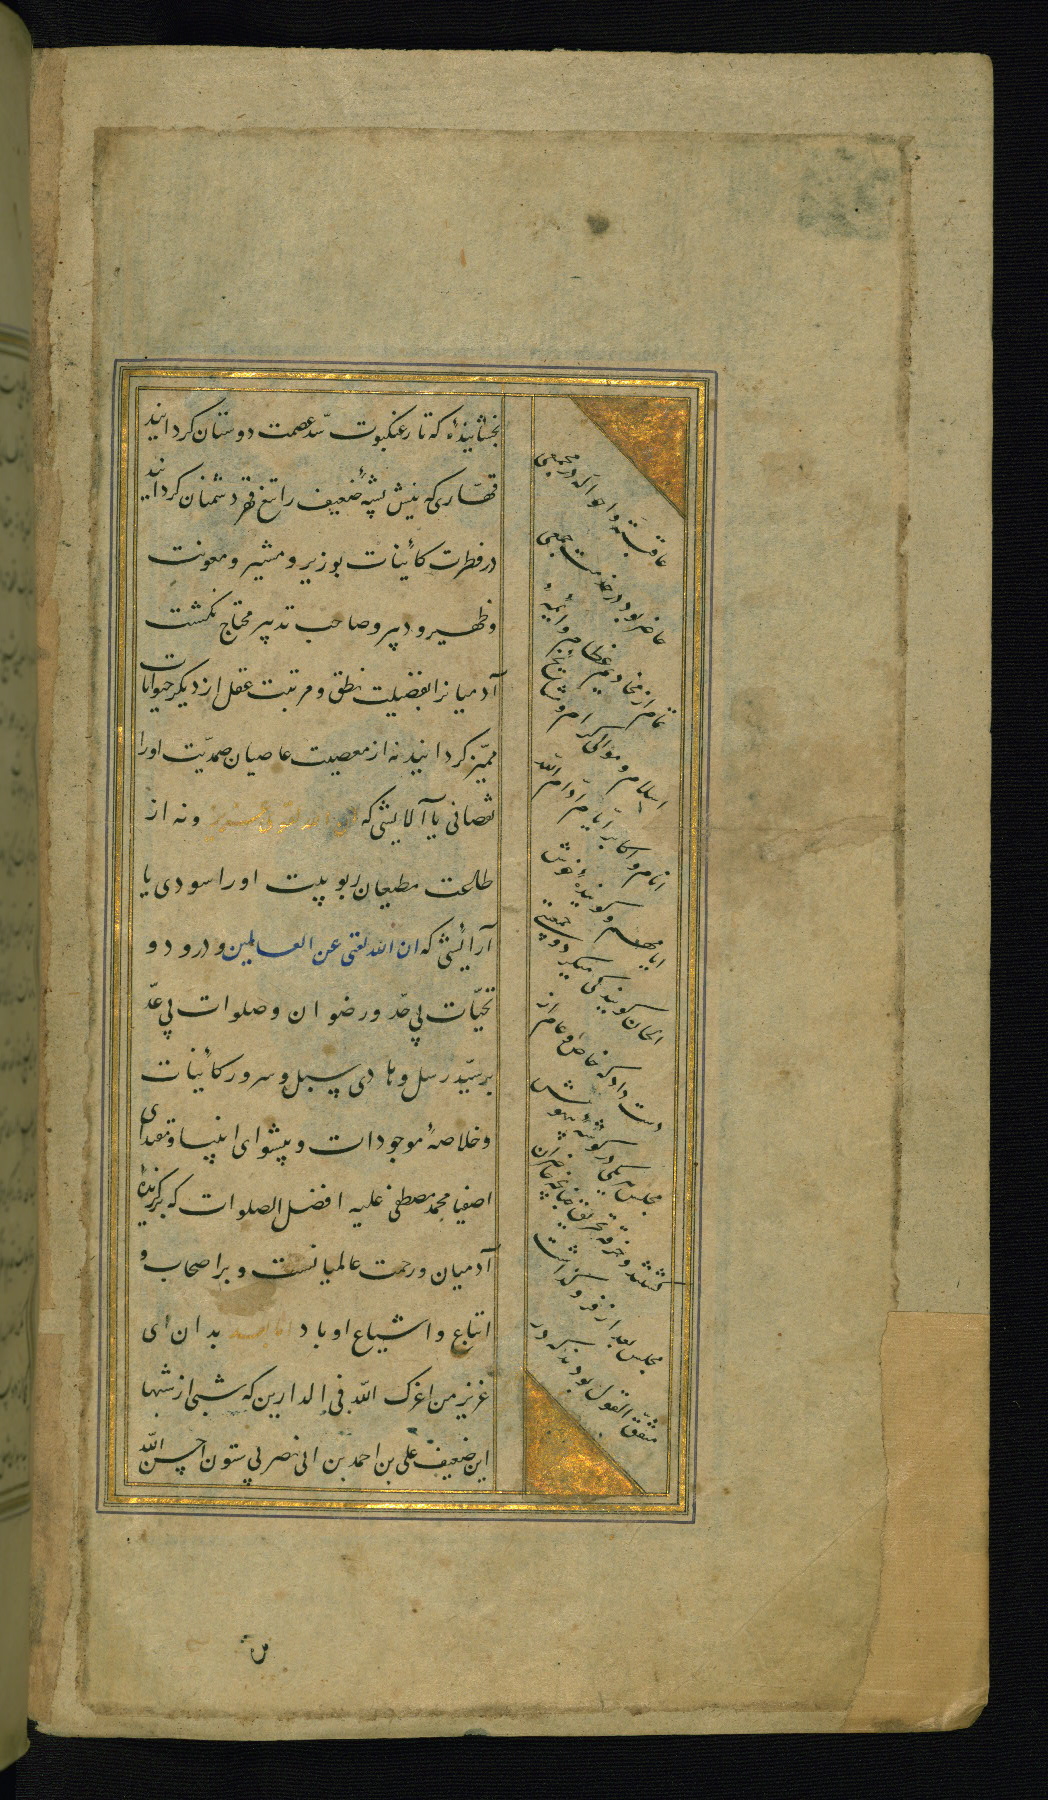 بخشاینده‌ٔ که تار عنکبوت سدّ عصمت دوستان گردانید
قهّاری که نیش پشهٔ ضعیف را تیغ قهر دشمنان گردانید
در فطرت کائینات بوزیر و مشیر و معونت
و ظهیر و دبیر و صاحب تدبیر محتاج نکشت
آدمیانرا بفضیلت نطق و مرتبت عقل از دیگر حیوانات
ممیّز گردانید نه از معصیت عاصیان صمدیّت او را
نقصانی یا آلایشی که ونه از
طاعت مطیعان ربوبیت او را سودی یا
آرائشی که ان الله لغنی عن العالمین و درود و
تحیّات بی حدّ و رضوان و صلوات بی عدّ
بر سیّد رسل و هادی سبل و سرور کائینات
و خلاصهٔ موجودات و پیشوای انبیا و مقتدای
اصفیا محمد مصطفی علیه افضل الصلوات که برگزیدهٔ
آدمیان و رحمت عالمیانست و بر اصحاب و
اتباع و اشیاع او باد اما بعد بدان ای
عزیز من اعزک الله فی الدارین که شبی از شبها
این ضعیف علی بن احمد بن ابی نصر بی ستون احسن الله
عاقبته و احواله در مجمعی
حاضر بود در خدمت جمعی
تمام از مخادیم عظام و ائمهٔ
اسلام و موالی کرام و مشایخ
انام و اکابر ایام ادام الله
ایامهم و گویندهٔ خوش
الحان گویندگی میکرد وقتی
دست داد که خاص و عام از
مجلس هر یکی در گوشهٔ بیهوش
گشتند و خرقه
مجلس بعد از فرو گذاشت
متفق القول بودند که در